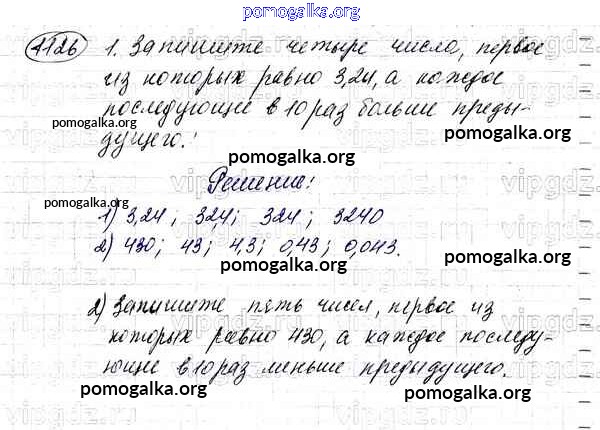 pomogalka.org
1126 1. Запишите четыре числа, первое
из которых равно 3,24, а каждое
последующие в 10 раз больше преды-
pomogalka.org pomogalka.org
дущего.
pomogalka.org
Решение:
pomogalka.org
1) 3,24; 32,4; 324; 3240
pomogalka.org
2) 430; 43; 4,3; 0,43; 0,043.
pomogalka.org
2) Запишите пять чисел, первое из
которых равно 430, а каждое последу-
ющие в 10 раз меньше предыдущего.
pomogalka.org pomogalka.org